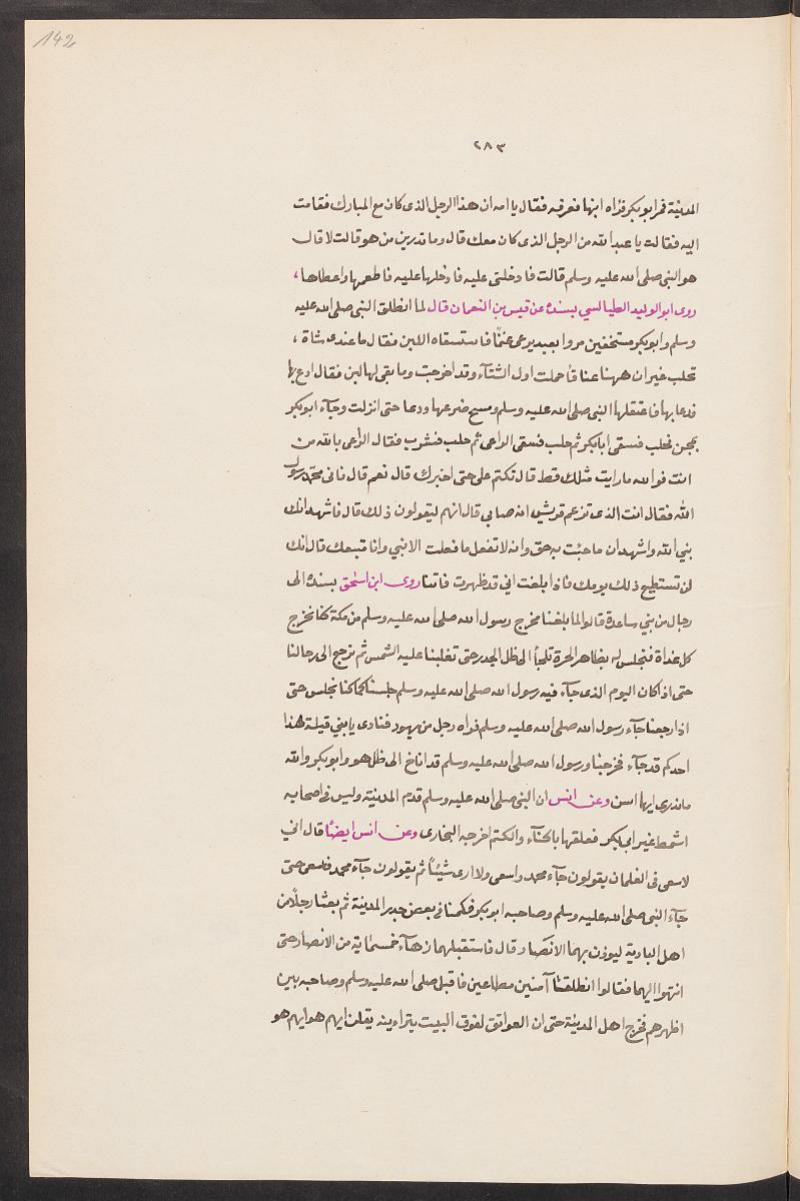 142
٢٨٣
المدينة فمر ابو بكر فرآه ابنها فعرفه فقال يا امه ان هذا الرجل الذى كان مع المبارك فقامت
اليه فقالت يا عبد الله من الرجل الذى كان معك قال وما تدرين من هو قالت لا قال
هو النبى صلى الله عليه وسلم قالت فادخلنى عليه فادخلها عليه فاطعمها واعطاها،
روى ابو الوليد الطيالسي بسنده عن قيس بن النعمان قال لما انطلق النبى صلى الله عليه
وسلم وابو بكر مستخفين مروا بعبد يرعى غنمًا فاستسقاه اللبن فقال ما عندى شاة،
تحلب غير ان ههنا عناقا حملت اول الشتآء وقد اخرجت وما بقى لها لبن فقال ادع بها
فدعا بها فاعتقلها النبى صلى الله عليه وسلم ومسح ضرعها ودعا حتى انزلت وجآء ابو بكر
بمجن فحلب فسقى ابا بكر ثم حلب فسقى الراعى ثم حلب فشرب فقال الراعى بالله من
انت فوالله ما رايت مثلك قط قال تكتم على حتى اخبرك قال نعم قال فانى محمد رسول
الله فقال انت الذى تزعم قريش انه صابى قال انهم ليقولون ذلك قال فاشهد انك
نبي الله واشهد ان ما جئت به حق وانه لا تفعل ما فعلت الا نبي وانا متبعك قال انك
لن تستطيع ذلك يومك فاذا بلغت اني قد ظهرت فاتنا روى ابن اسحق بسنده الى
رجال من بني ساعدة قالوا لما بلغنا مخرج رسول الله صلى الله عليه وسلم من مكة كنا نخرج
كل غداة فنجلس له بظاهر الحرة نلجأ الى ظل الجدر حتى تغلبنا عليه الشمس ثم نرجع الى رحالنا
حتى اذا كان اليوم الذى جآء فيه رسول الله صلى الله عليه وسلم جلسنا كما كنا نجلس حتى
اذا رجعنا جآء رسول الله صلى الله عليه وسلم فرآه رجل من يهود فنادى يا بني قيلة هذا
احدكم قد جآء فخرجنا ورسول الله صلى الله عليه وسلم قد اناخ الى ظل هو وابو بكر والله
ما ندرى ايها اسن وعن انس ان النبى صلى الله عليه وسلم قدم المدينة وليس فى اصحابه
اشمط غير ابى بكر فعلقها بالحنآء والكتم اخرجه البخارى وعن انس ايضًا قال اني
لاسعى فى الغلمان يقولون جآء محمد واسعى ولا ارى شيئًا ثم يقولون جآء محمد فاسعى حتى
جآء النبى صلى الله عليه وسلم وصاحبه ابو بكر فكمنا فى بعض جدر المدينة ثم بعثا رجلًا من
اهل البادية ليوذن بهما الانصار قال فاستقبلهما زهآء خمسماية من الانصار حتى
انتهوا اليهما فقالوا انطلقا آمنين مطاعين فاقبل صلى الله عليه وسلم وصاحبه بين
اظهرهم فخرج اهل المدينة حتى ان العواتق لفوق البيت يتراءينه يقلن ايهم هو ايهم هو